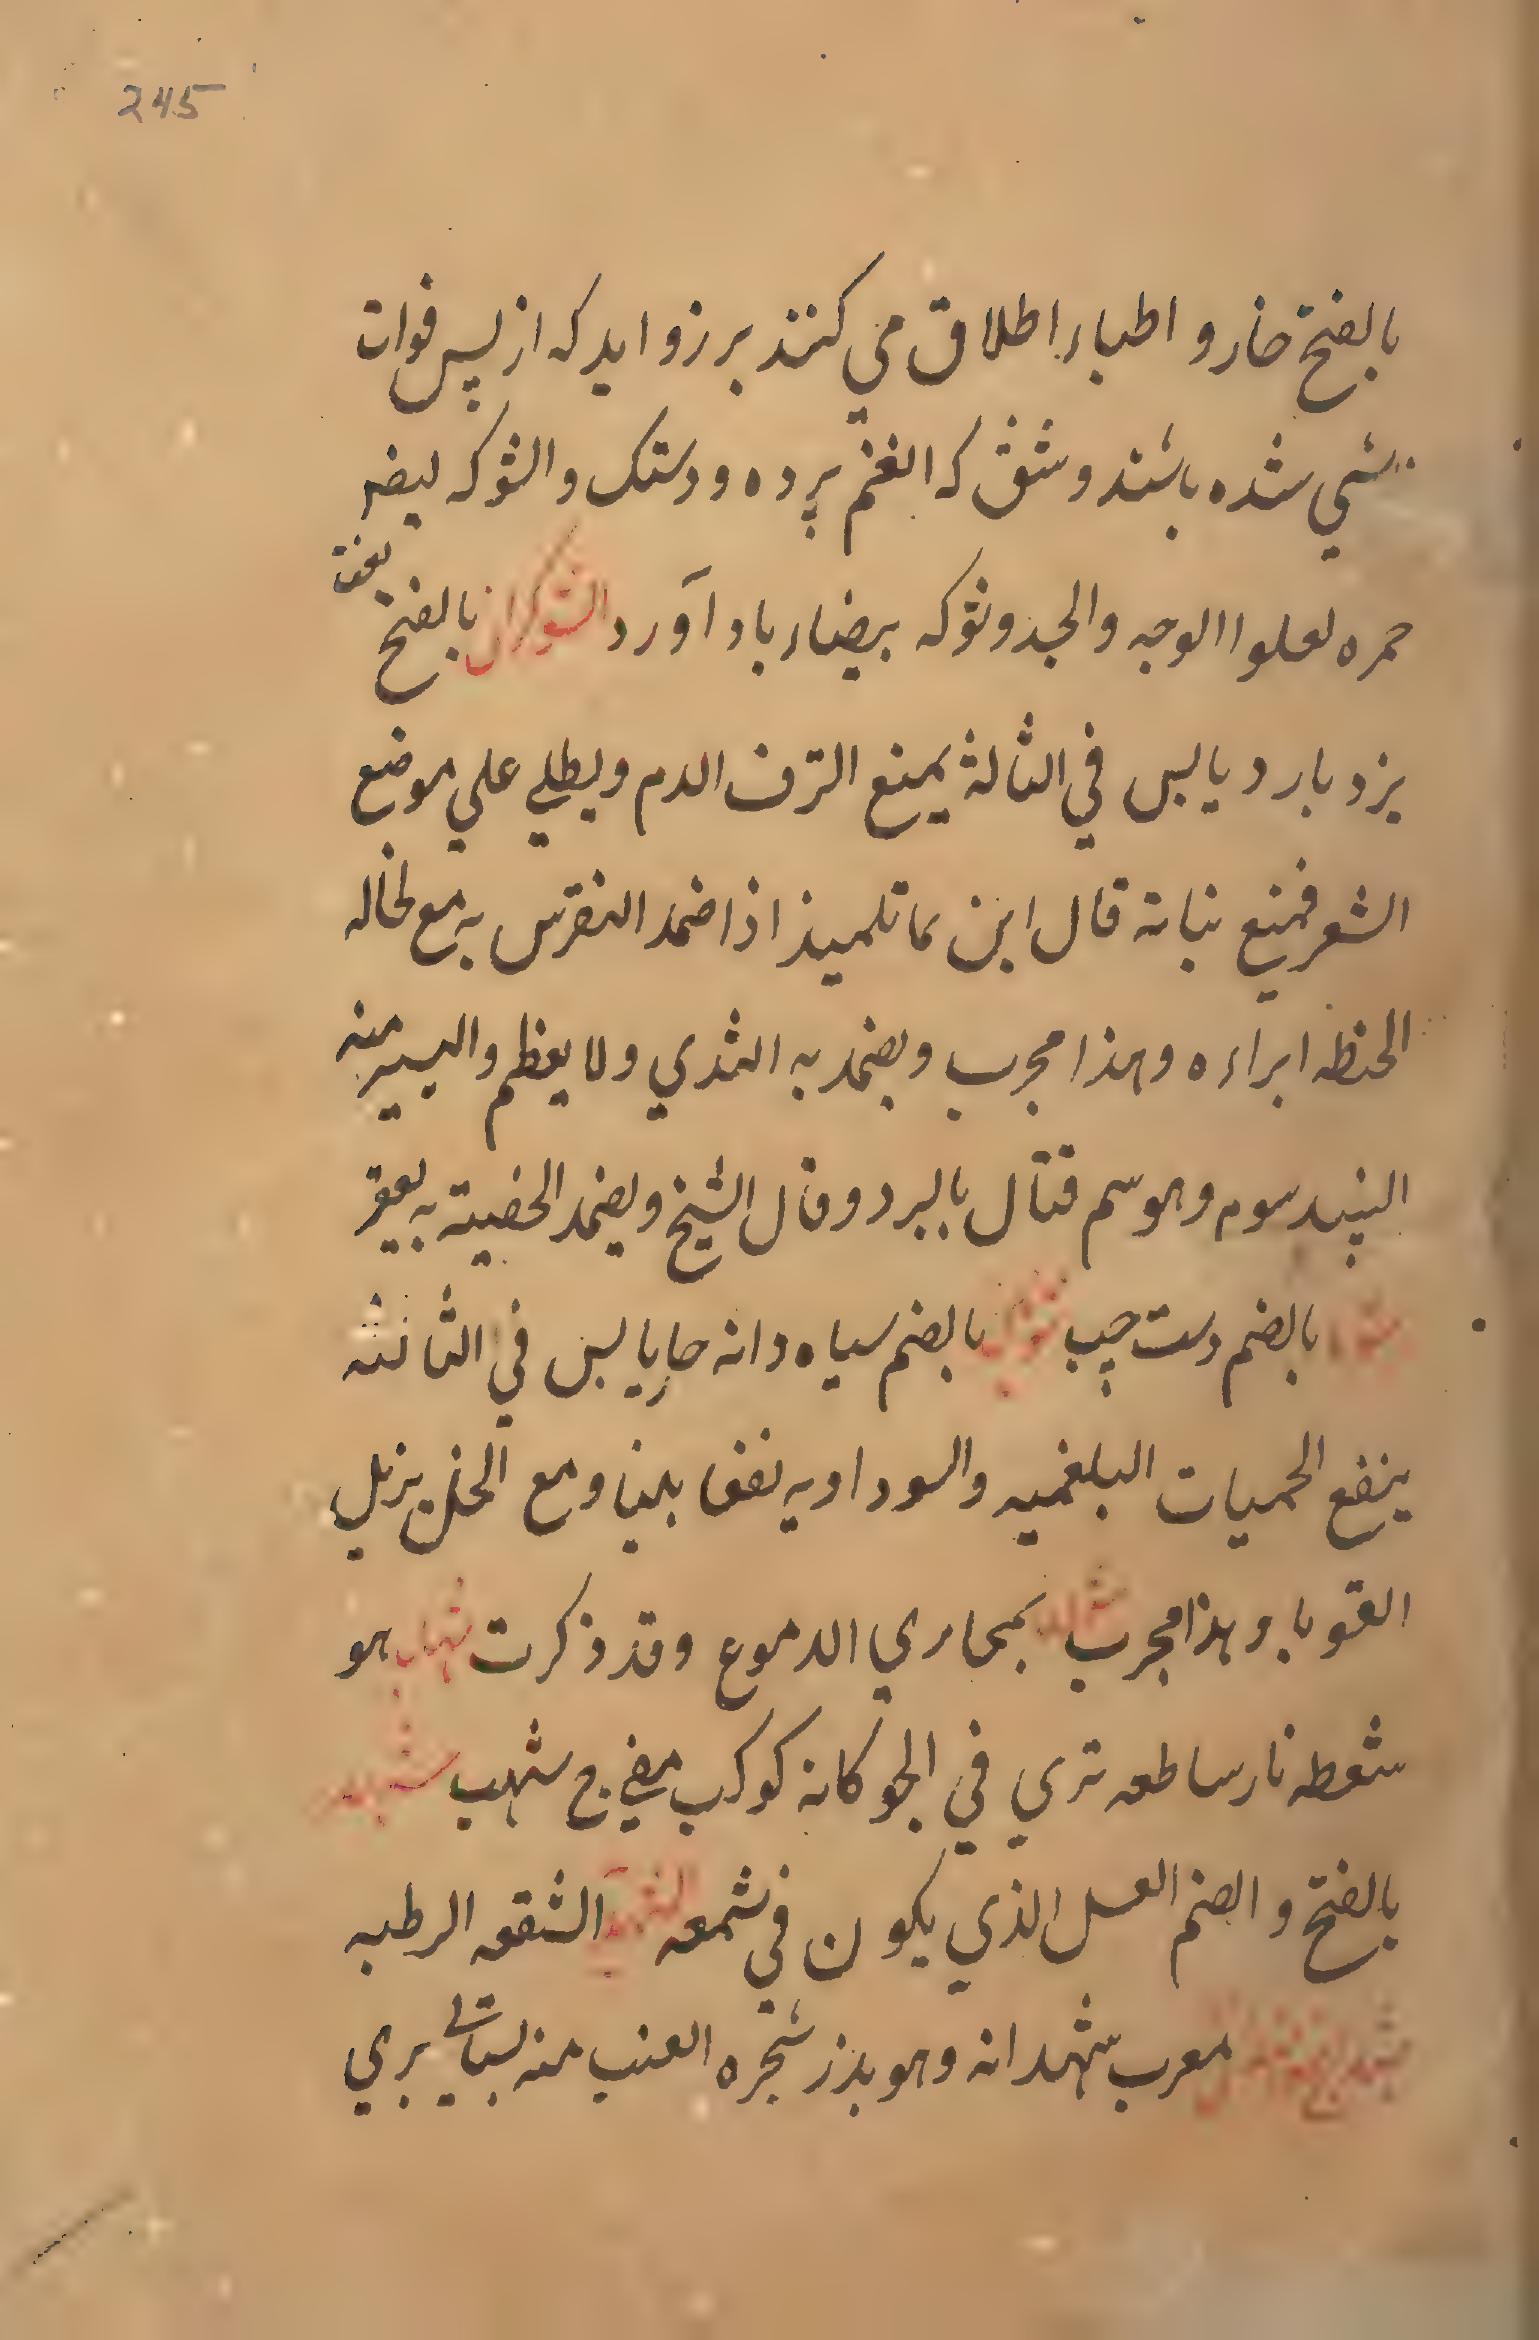 245
بالفتح خار و اطباء اطلاق مي كنند برزوايد كه از پس فوات
شي شده باشند و شق كه الغنم برده ودستك والشوكه ليضه
حمره لعلوا الوجه والجد وشوكه بيضاء باد آورد الشوكران بالفتح
يعنى
بزد بارد يابس في الثالثة يمنع النزف الدم ويطلي علي موضع
الشعر فمنع نباته قال ابن تلميذ اذا ضمد النقرس به مع نخاله
الحنظه ابراءه وهذا مجرب ويضمد به الثدي ولا يعظم واليسير منه
سوم وهو سم قتال بالبرد وقال الشيخ ويضمد الخصية به
بالضم دست چپ بالضم سياه دانه حار يابس في الثالثه
ينفع الحميات البلغميه والسوداويه نفعا بلیغا ومع الخل يزيل
القوبا وهذا مجرب بمجاري الدموع وقد ذكرت شهاب هو
شعطه نار ساطعه تري في الجو كانه كوكب ج شهب شهد
بالفتح و الضم العسل الذي يكون في شمعه الشقعه الرطبه
معرب شهدانه وهو بذر شجره العنب منه بستاني بري